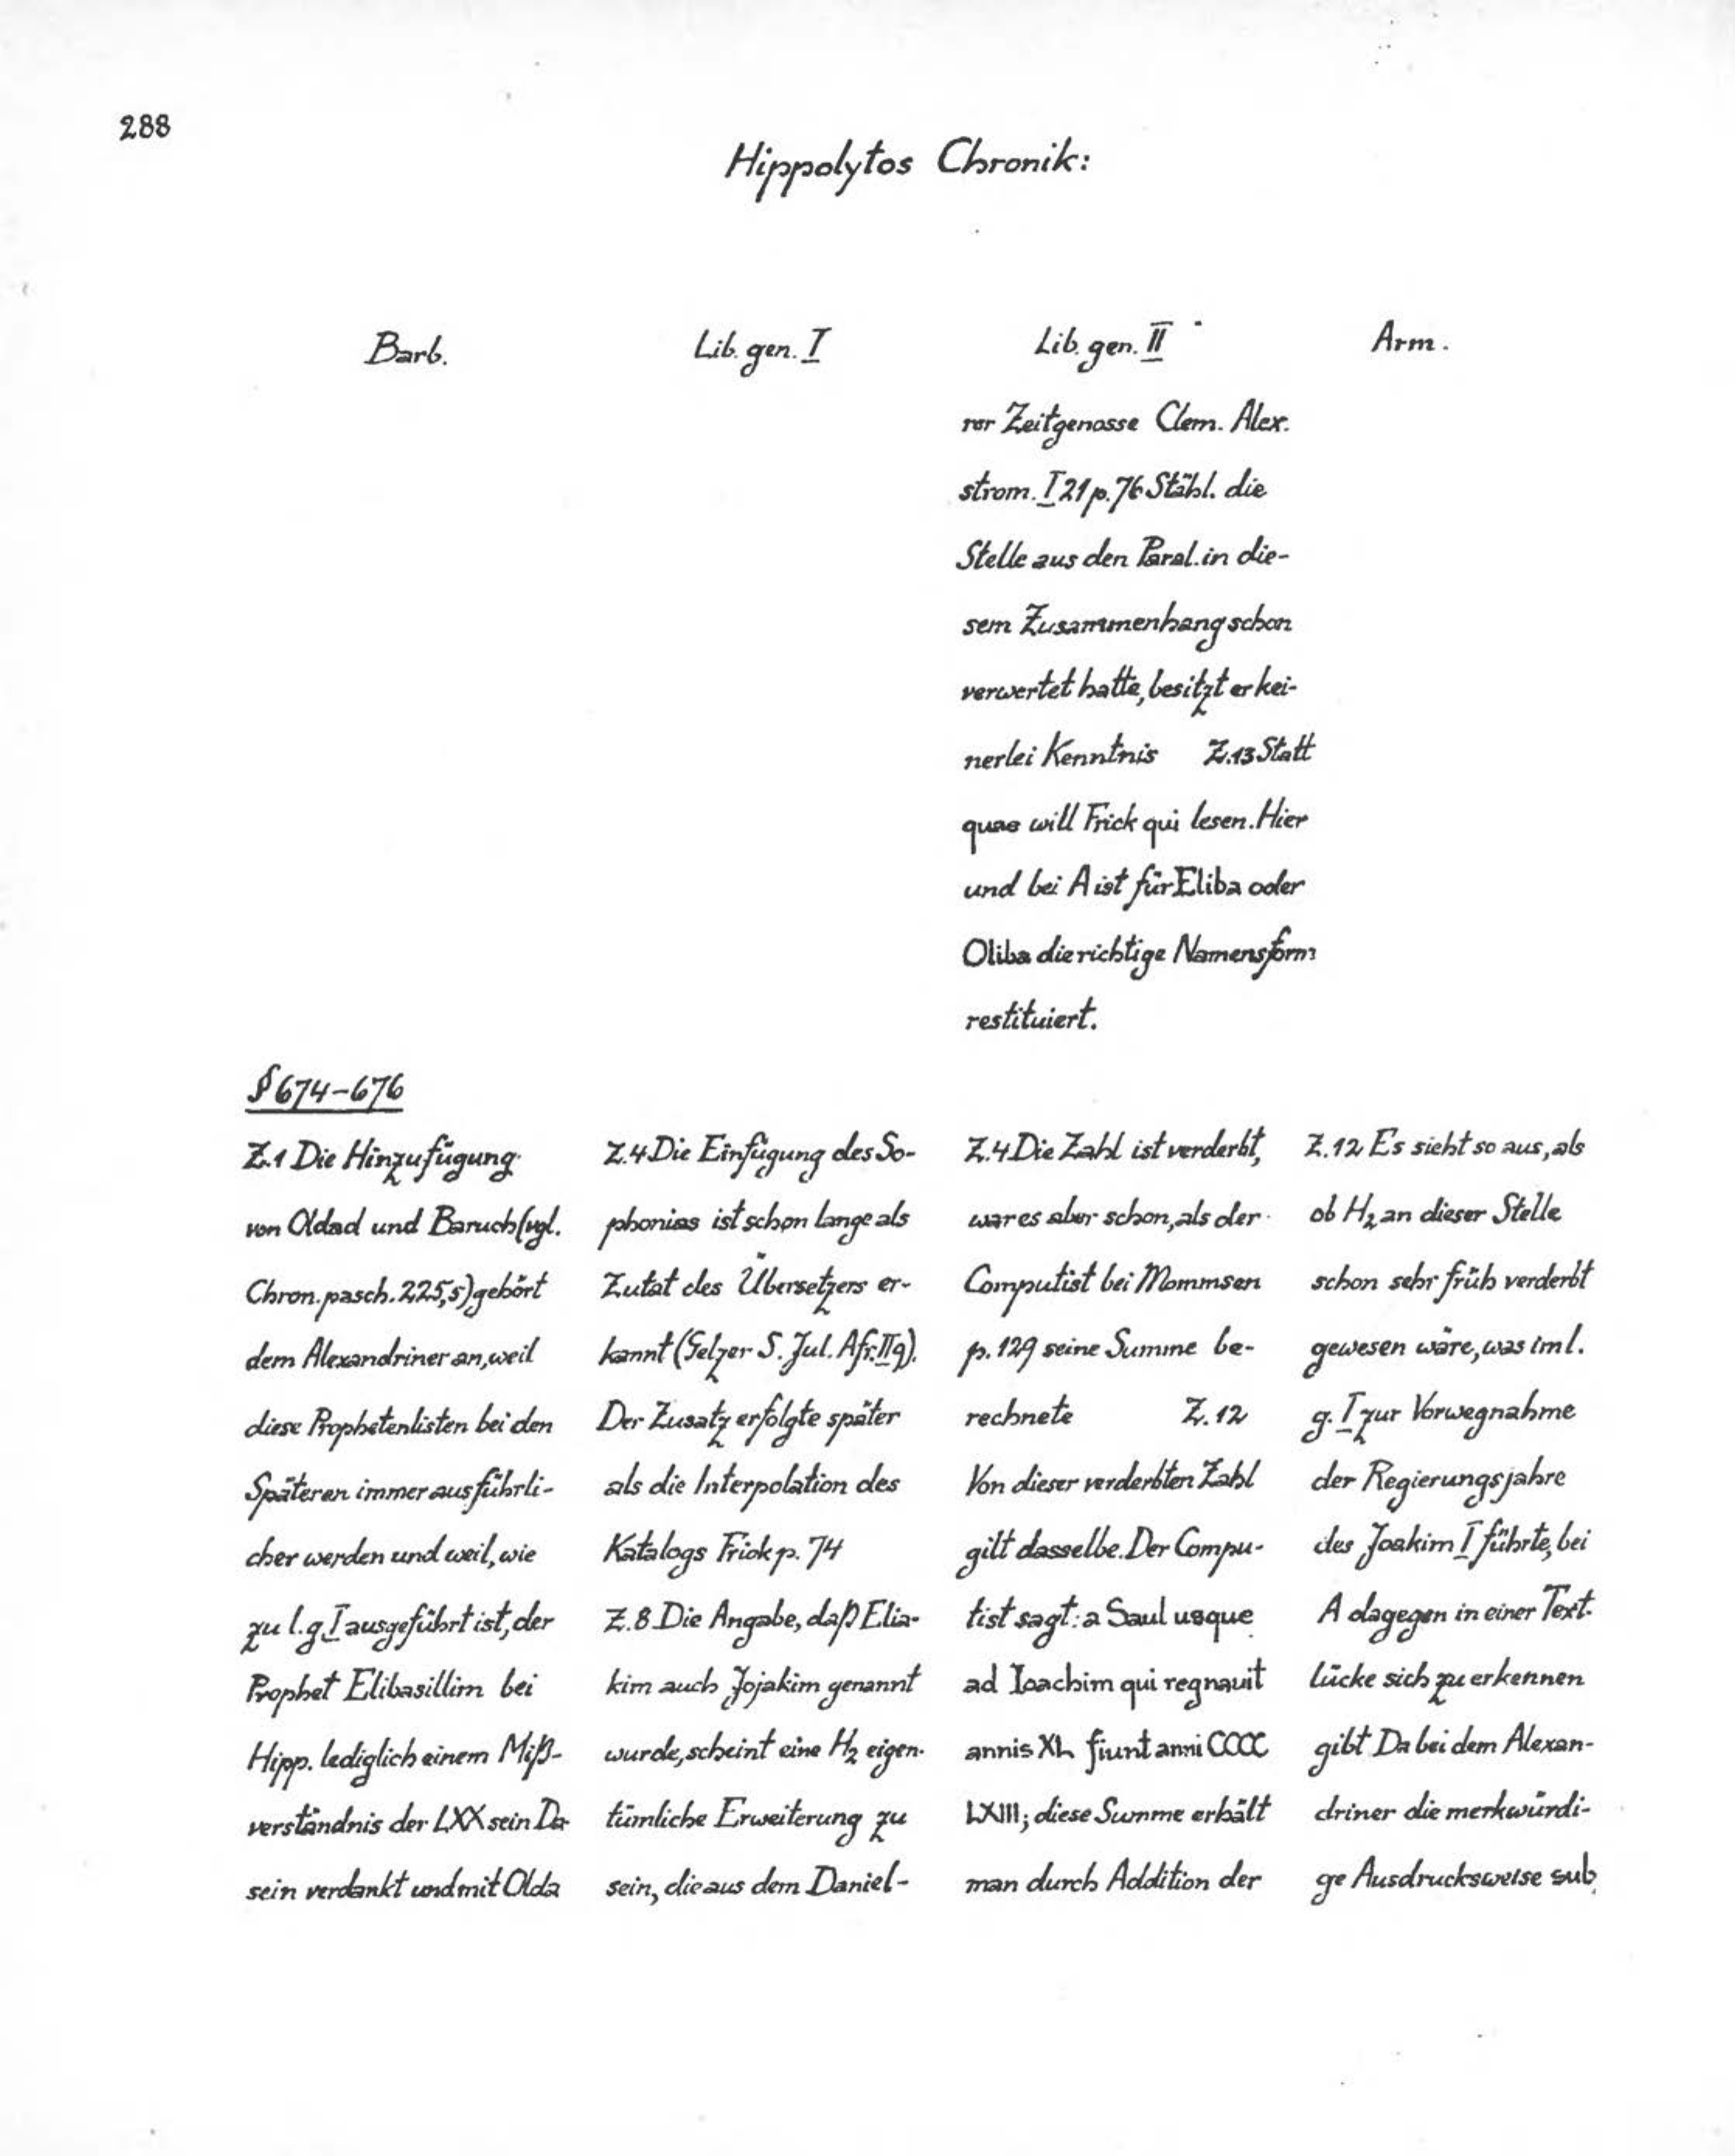 288
Hippolytos Chronik:
Barb.
Lib. gen. I
Lib. gen. II
Arm.
rer Zeitgenosse Clem. Alex.
strom. I 21 p. 76 Stähl. die
Stelle aus den Paral. in die-
sem Zusammenhang schon
verwertet hatte, besitzt er kei-
nerlei Kenntnis Z. 13 Statt
quae will Frick qui lesen. Hier
und bei A ist für Eliba oder
Oliba die richtige Namensform
restituiert.
§ 674-676
Z. 1 Die Hinzufügung
von Oldad und Baruch (vgl.
Chron. pasch. 225,5) gehört
dem Alexandriner an, weil
diese Prophetenlisten bei den
Späteren immer ausführli-
cher werden und weil, wie
zu l. g. I ausgeführt ist, der
Prophet Elibasillim bei
Hipp. lediglich einem Miß-
verständnis der LXX sein Da-
sein verdankt und mit Olda
Z. 4 Die Einfügung des So-
phonias ist schon lange als
Zutat des Übersetzers er-
kannt (Gelzer S. Jul. Afr. II 9).
Der Zusatz erfolgte später
als die Interpolation des
Katalogs Frick p. 74
Z. 8 Die Angabe, daß Elia-
kim auch Jojakim genannt
wurde, scheint eine H2 eigen-
tümliche Erweiterung zu
sein, die aus dem Daniel-
Z. 4 Die Zahl ist verderbt,
war es aber schon, als der
Computist bei Mommsen
p. 129 seine Summe be-
rechnete Z. 12
Von dieser verderbten Zahl
gilt dasselbe. Der Compu-
tist sagt: a Saul usque
ad Ioachim qui regnauit
annis XL fiunt anni CCCC
LXIII; diese Summe erhält
man durch Addition der
Z. 12 Es sieht so aus, als
ob H2 an dieser Stelle
schon sehr früh verderbt
gewesen wäre, was im l.
g. I zur Vorwegnahme
der Regierungsjahre
des Joakim I führte, bei
A dagegen in einer Text-
lücke sich zu erkennen
gibt Da bei dem Alexan-
driner die merkwürdi-
ge Ausdrucksweise sub